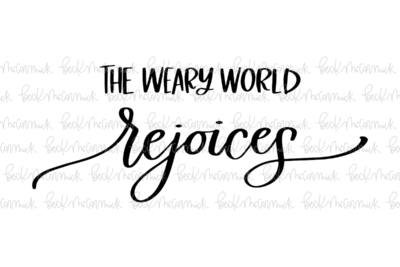 THE WEARY WORLD
rejoices